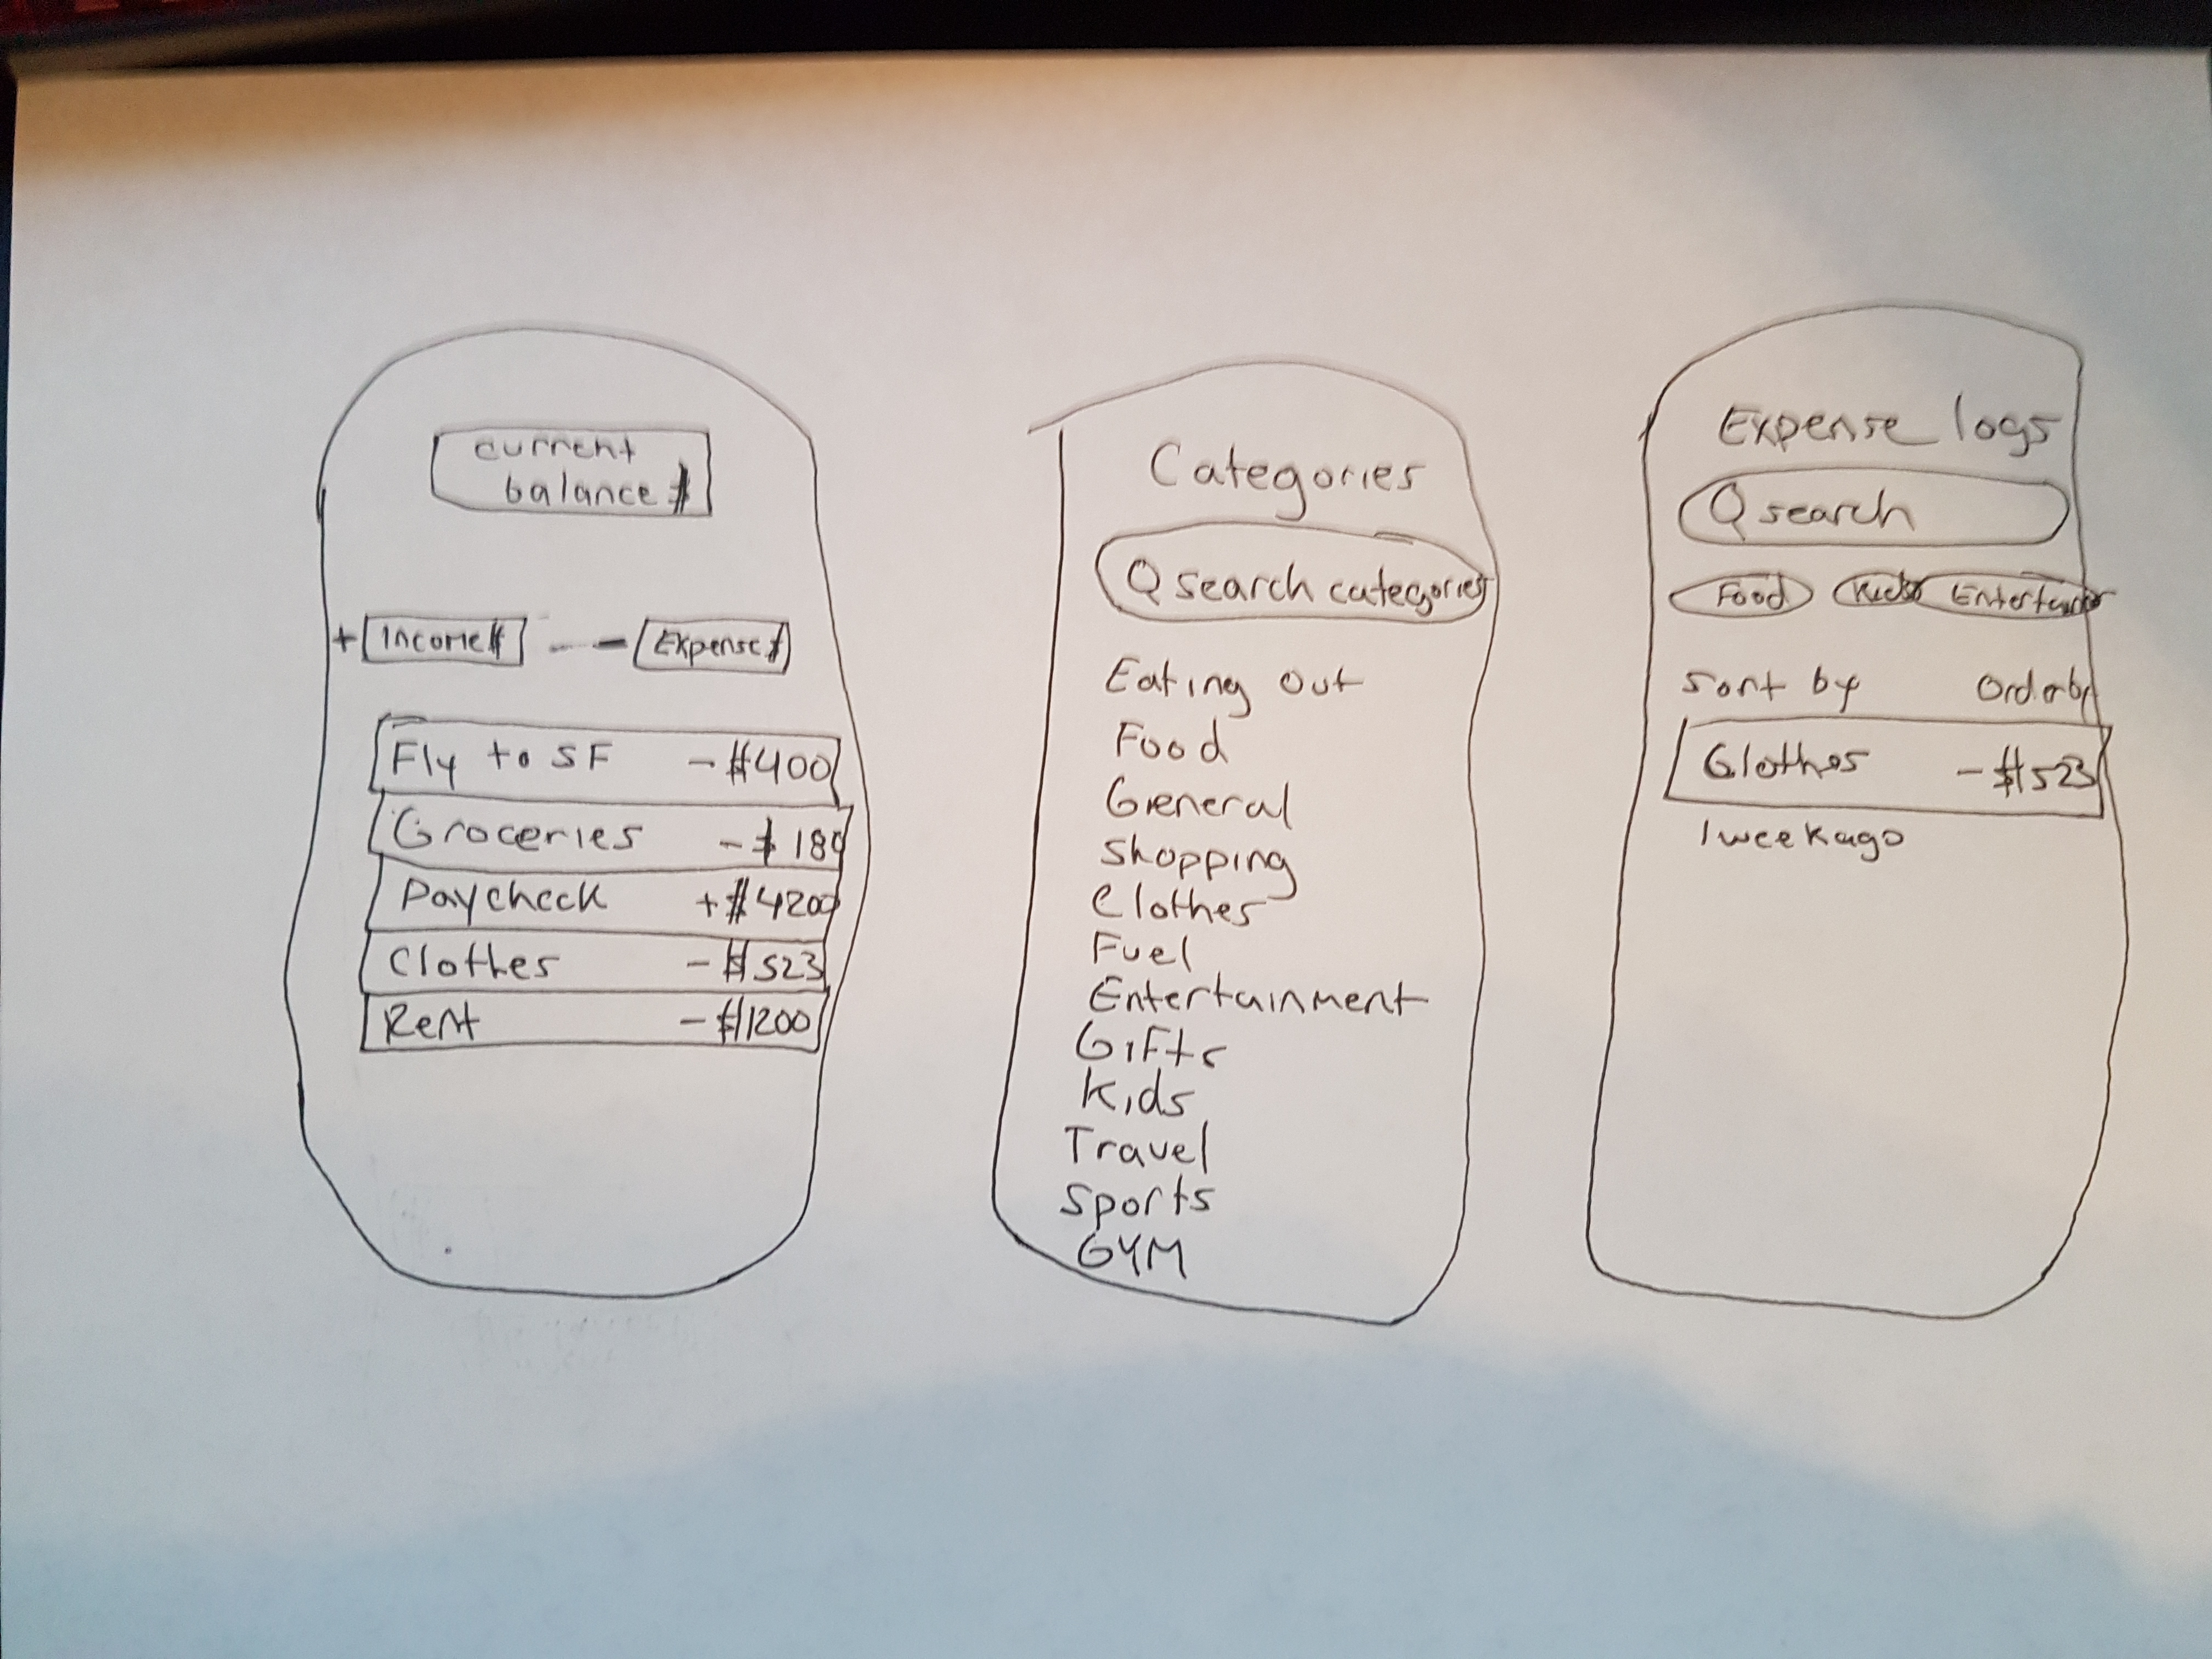 current
balance $
+ Income $ - Expense $
Fly to SF -$400
Groceries -$180
Paycheck +$4200
Clothes -$523
Rent -$1200
Categories
search categories
Eating out
Food
General
Shopping
Clothes
Fuel
Entertainment
Gifts
Kids
Travel
Sports
GYM
Expense logs
search
Food Kids
Sort by Order by
Clothes -$523
1 week ago